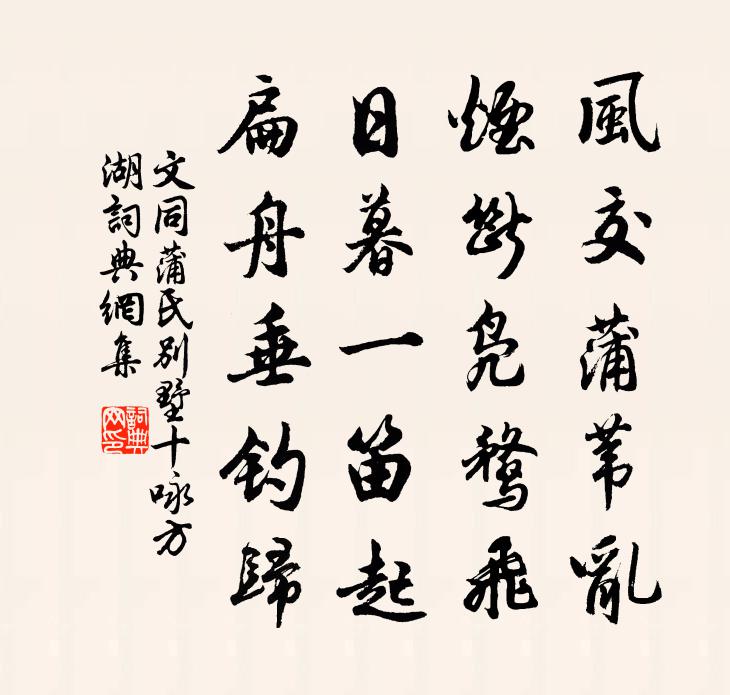 風交蒲苇亂
煙斷鳧鶩飛
日暮一笛起
扁舟垂釣歸
文同蒲氏別墅十咏方
湖詞典網集
詞典
网印